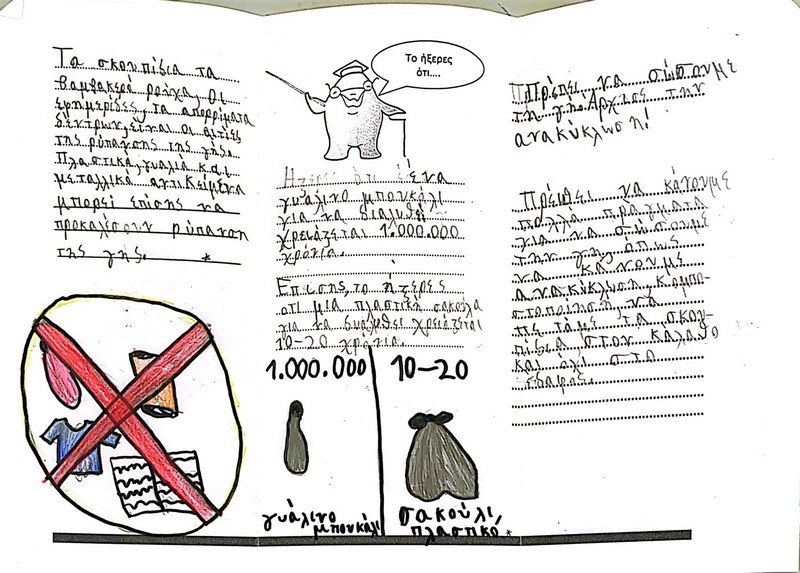 Τα σκουπίδια τα
βαμβακερά ρούχα, οι
εφημερίδες, τα απορρίματα
δέντρων, είναι οι αιτίες
της ρύπανσης της γης.
Πλαστικά, γυαλιά και
μεταλλικά αντικείμενα
μπορεί επίσης να
προκαλέσουν ρύπανση
της γης. *
Το ήξερες
ότι....
Ήξερες ότι ένα
γυάλινο μπουκάλι
για να διαλυθεί
χρειάζεται 1.000.000
χρόνια.
Επισης, το ήξερες
οτι μια πλαστική σακούλα
για να διαλυθει χρειάζεται
10-20 χρόνια.
1.000.000
10-20
γυάλινο
μπουκάλι
σακούλι,
πλαστικό *
Πρέπει να σώσουμε
τη γη. Άρχισε την
ανακύκλωση!
Πρέπει να κάνουμε
πολλα πραγματα
για να σώσουμε
την γης, όπως
να κανουμε
ανακύκλωση, κομπο-
στοποίηση να
πετάμε τα σκου-
πίδια στον κάλαθο
και όχι στο
έδαφος.